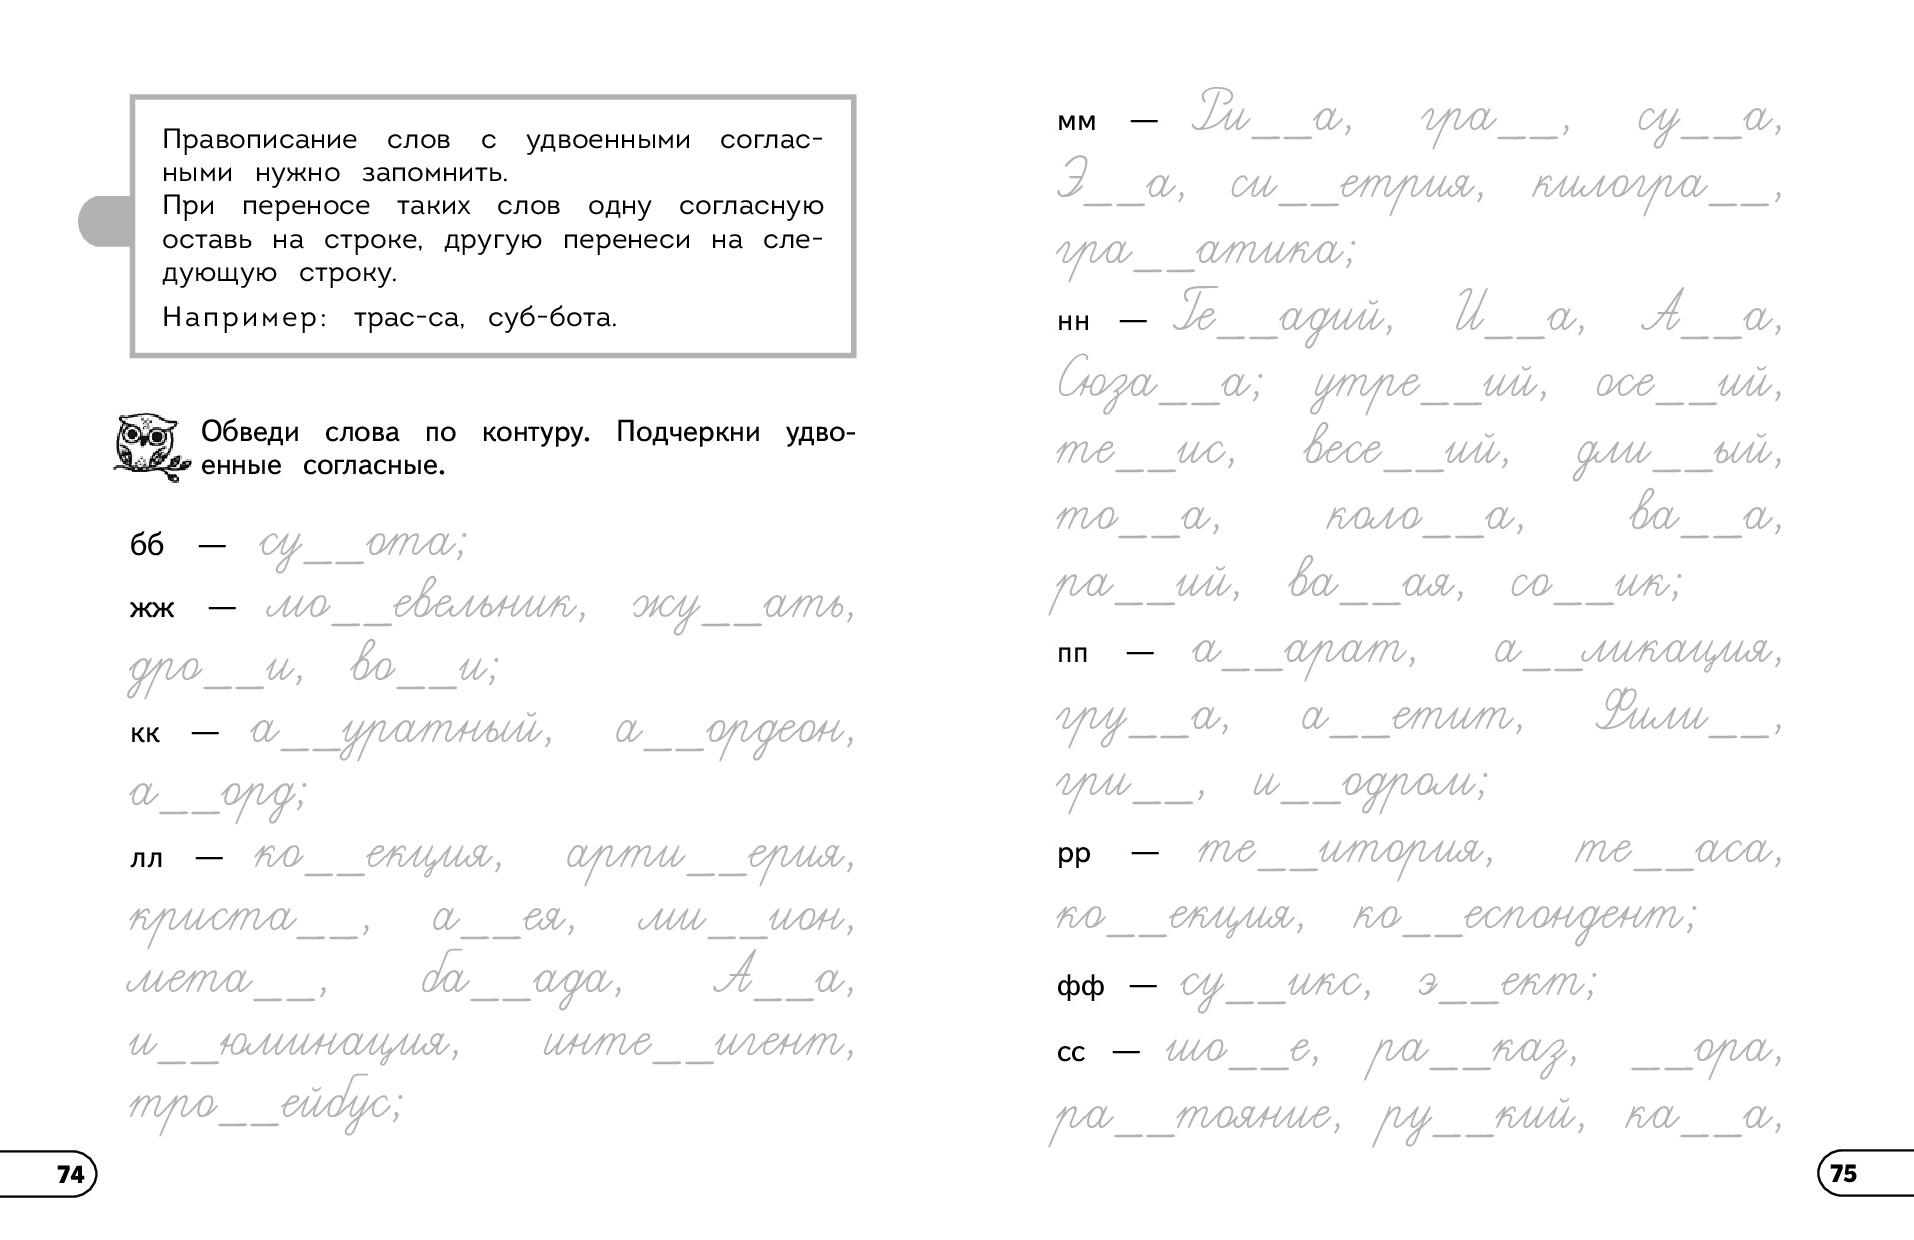 Правописание слов с удвоенными соглас-
ными нужно запомнить.
При переносе таких слов одну согласную
оставь на строке, другую перенеси на сле-
дующую строку.
Например: трас-са, суб-бота.
Обведи слова по контуру. Подчеркни удво-
енные согласные.
бб — су__ота;
жж — мо__евельник, жу__ать,
дро__и, во__и;
кк — а__уратный, а__ордеон,
а__орд;
лл — ко__екция, арти__ерия,
криста__, а__ея, ми__ион,
мета__, ба__ада, А__а,
и__юминация, инте__игент,
тро__ейбус;
74
мм — Ри__а, гра__, су__а,
Э__а, си__етрия, килогра__,
гра__атика;
нн — Ге__адий, И__а, А__а,
Сюза__а; утре__ий, осе__ий,
те__ис, весе__ий, дли__ый,
то__а, коло__а, ва__а,
ра__ий, ва__ая, со__ик;
пп — а__арат, а__ликация,
гру__а, а__етит, Фили__,
гри__, и__одром;
рр — те__итория, те__аса,
ко__екция, ко__еспондент;
фф — су__икс, э__ект;
сс — шо__е, ра__каз, __ора,
ра__тояние, ру__кий, ка__а,
75